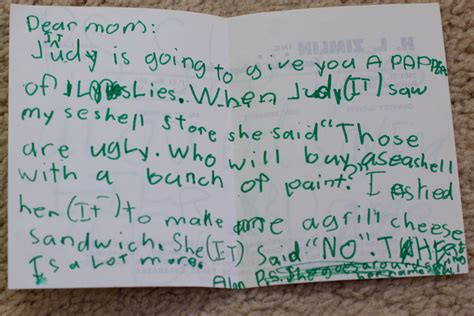 Dear mom:
IT
Judy is going to give you A PAPPER
of Lies. When Judy (IT) saw
my seshell store she said "Those
are ugly. Who will buy a seashell
with a bunch of paint? I asked
her (IT) to make me agrill cheese
sandwich. She (IT) said "NO". THEre
Is a Lot more.
Alan P.S. She goes around saying
her name is